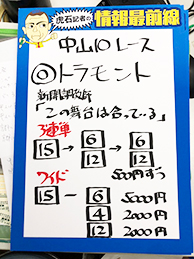 虎石記者の
情報最前線
中山10レース
◎トラモント
新開調教師
「この舞台は合っている」
3連単
15 → 6 12 → 6 12
500円ずつ
ワイド
15 - 6 5000円
4 2000円
12 2000円